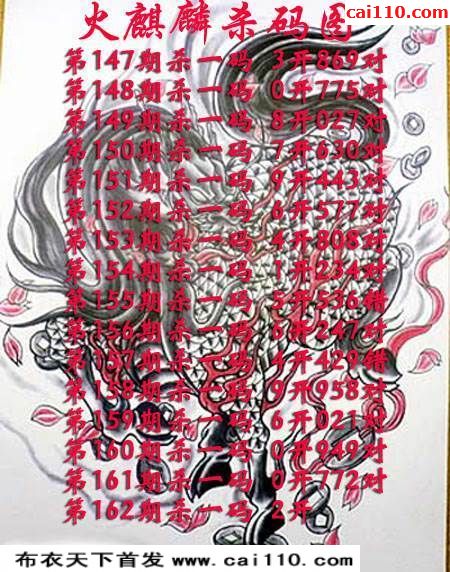 cai110.com
火麒麟杀码图
第147期杀一码 3开869对
第148期杀一码 0开775对
第149期杀一码 8开027对
第150期杀一码 7开630对
第151期杀一码 9开443对
第152期杀一码 6开577对
第153期杀一码 4开808对
第154期杀一码 1开234对
第155期杀一码 5开536错
第156期杀一码 开247对
第157期杀一码 4开429错
第158期杀一码 开958对
第159期杀一码 6开021对
第160期杀一码 0开949对
第161期杀一码 0开772对
第162期杀一码 2开
布衣天下首发 www.cai110.com